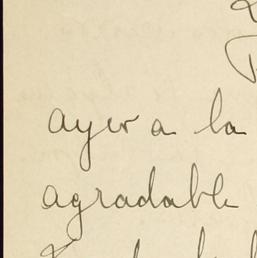 ayer a la
agradable